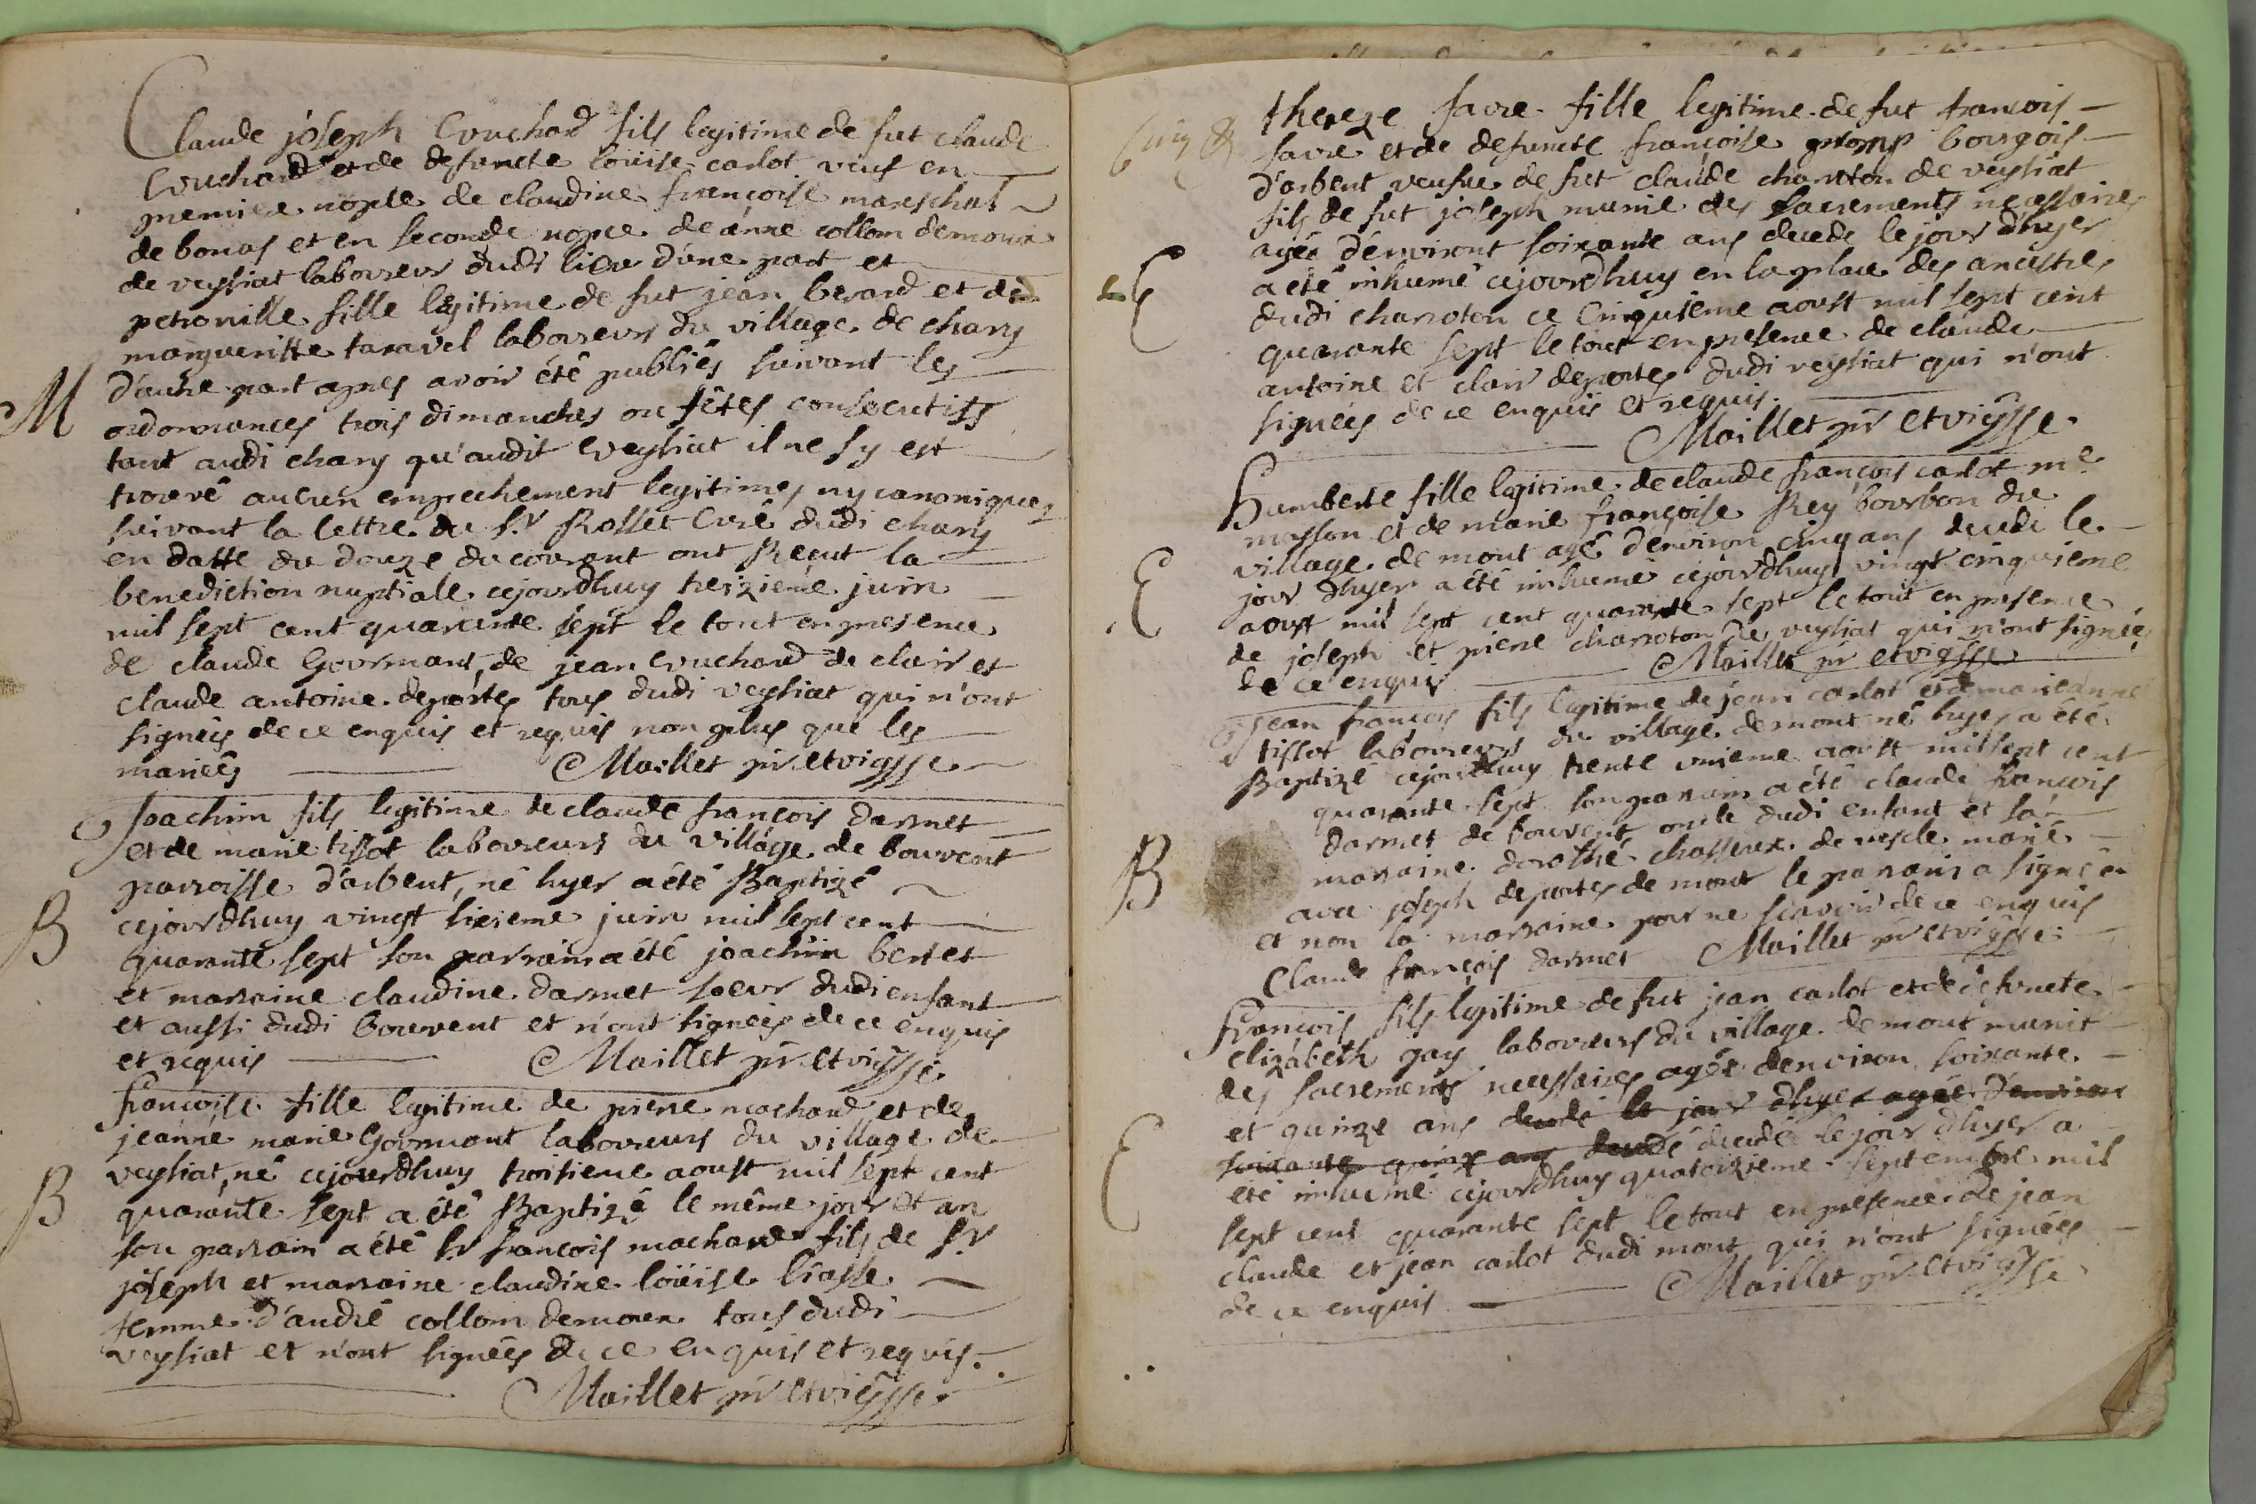 Claude joseph Couchard fils legitime de fut claude
Couchard et de defuncte loüise carlot veuf en
premiere nopce de claudine françoise mareschal
de bonas et en seconde nopce de anne collom demoux
de veysiat laboureur dudi lieu d'une part et
petronille fille legitime de fut jean berard et de
margueritte taravel laboureurs du village de chary
M
d'autre part apres avoir été publiés suivant les
ordonnances trois dimanches ou fêtes consecutifs
tant audi chary qu'audit veysiat il ne sy est
trouvé aucun empechement legitimes ny canoniques
suivant la lettre du Sr Rosset Curé dudi chary
en datte du douze du courant ont Reçut la
benediction nuptiale cejourdhuy treizieme juin
mil sept cent quarante sept le tout en presence
de claude Gourmant, de jean couchard de clair et
claude antoine deportes tous dudi veysiat qui n'ont
signées de ce enquis et requis non plus que les
mariées Maillet ptr et vigsse
Joachim fils legitime de claude françois darmet
et de marie tissot laboureurs du village de bouvent
parroisse d'arbent, né hyer a été Baptizé
B
cejourdhuy vingt sixieme juin mil sept cent
quarante sept son parrain a été joachim bertet
et marraine claudine darmet soeur dudi enfant
et aussi dudi bouvent et n'ont signées de ce enquis
et requis Maillet ptr et vigsse
françoise fille legitime de pierre machard et de
jeanne marie Gourmont laboureurs du village de
veysiat, né cejourdhuy troisieme aoust mil sept cent
B
quarante sept a été Baptizé le même jour et an
son parrain a été Sr françois machard fils de Sr
joseph et marraine claudine loüise liasse
femme d'andré collom demoux tous dudi
veysiat et n'ont signées de ce enquis et requis.
Maillet ptr et vigsse
thereze favre fille legitime de fut francois
favre et de defuncte françoise promp bourgois
d'arbent veufve de fut claude charroton de veysiat
fils de fut joseph munie des Sacrements necessaires
agée d'environt soixante ans decede le jour d'hyer
E
a été inhumé cejourdhuy en la place des ancestres
dudi charroton ce Cinquieme aoust mil sept cent
quarante sept le tout en presence de claude
antoine et clair deportes dudi veysiat qui n'ont
signées de ce enquis et requis.
Maillet ptr et vigsse
Humberte fille legitime de claude françois carlot me
masson et de marie françoise Rey bourbon du
village de mont agé d'environ cinq ans decede le
E
jour dhyer a été inhumé cejourdhuy vingt cinquieme
aoust mil sept cent quarante sept le tout en presence
de joseph et pierre charroton de veysiat qui n'ont signée
de ce enquis Maillet ptr et vigsse
jean françois fils legitime de jean carlot et de marieanne
tissot laboureurs du village de mont né hyer a été
Baptizé cejourdhuy trente unieme aoust mil sept cent
quarante sept son parrain a été claude françois
B
darmet de bouvent oncle dudi enfant et sa
marraine dorothé chasseux de vescle marié
avec joseph deportes de mont le parrain a signé
et non la marraine pour ne scavoir de ce enquis
Claude françois darmet Maillet ptr et vigsse
françois fils legitime de fut jean carlot et de defuncte
elizabeth gay laboureurs du village de mont munit
des sacrements necessaires agée denviron soixante
et quinze ans decede le jour dhyer agée d'environ
E
soixante quinze ans decedé decedé le jour dhyer a
été inhumé cejourdhuy quatorzieme septembre mil
sept cent quarante sept le tout en presence de jean
claude et jean carlot dudi mont qui n'ont signées
de ce enquis Maillet ptr et vigsse